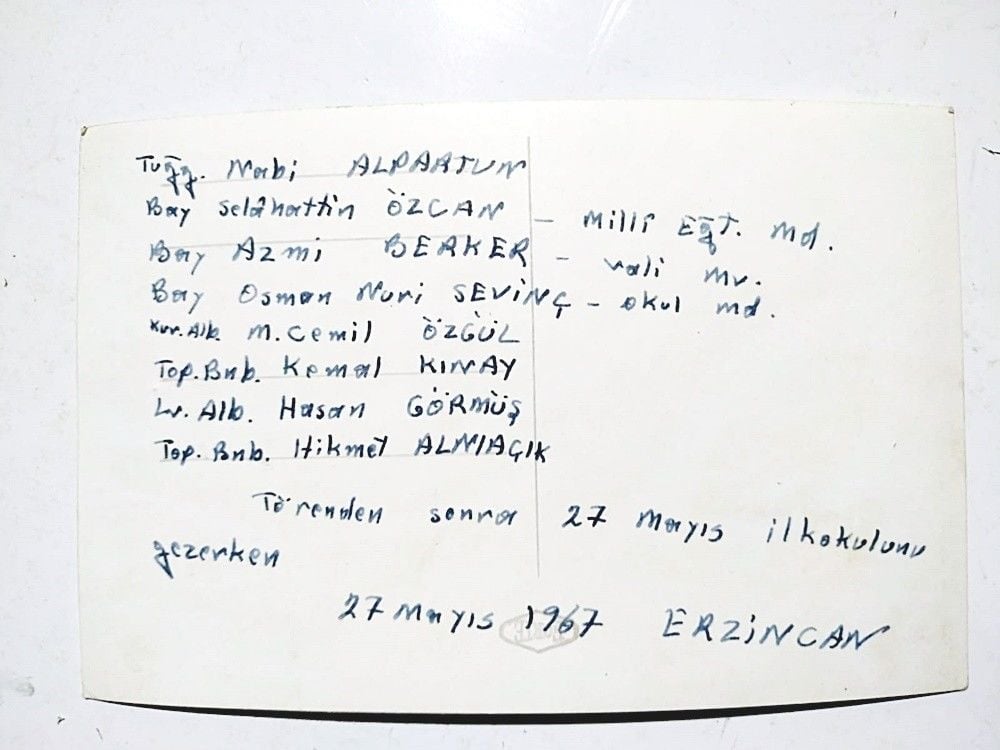 Tuğg. Nabi ALPARTUN
Bay Selâhattin ÖZCAN - Milli Eğt. Md.
Bay Azmi BERKER - Vali Mv.
Bay Osman Nuri SEVİNÇ - okul md.
Kur. Alb. M. Cemil ÖZGÜL
Top. Bnb. Kemal KINAY
Lv. Alb. Hasan GÖRMÜŞ
Top. Bnb. Hikmet ALNIAÇIK
Törenden sonra 27 Mayıs ilkokulunu
gezerken
27 Mayıs 1967 ERZİNCAN